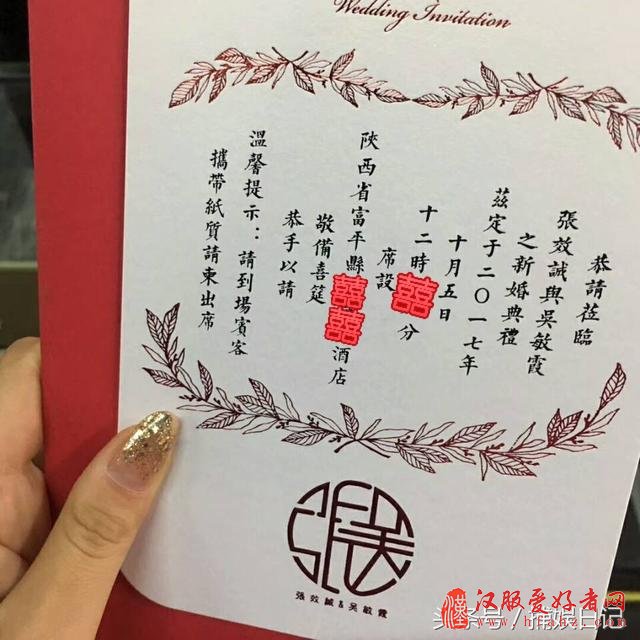 Wedding Invitation
恭請莅臨
張效誠與吳敏霞
之新婚典禮
茲定于二〇一七年
十月五日
十二時囍分
席設
陝西省富平縣囍囍酒店
敬備喜筵
恭手以請
溫馨提示：請到場賓客
攜帶紙質請柬出席
張吳
張效誠&吳敏霞
漢
汉服爱好者网
www.hfahz.com
头条号/捕娱日记